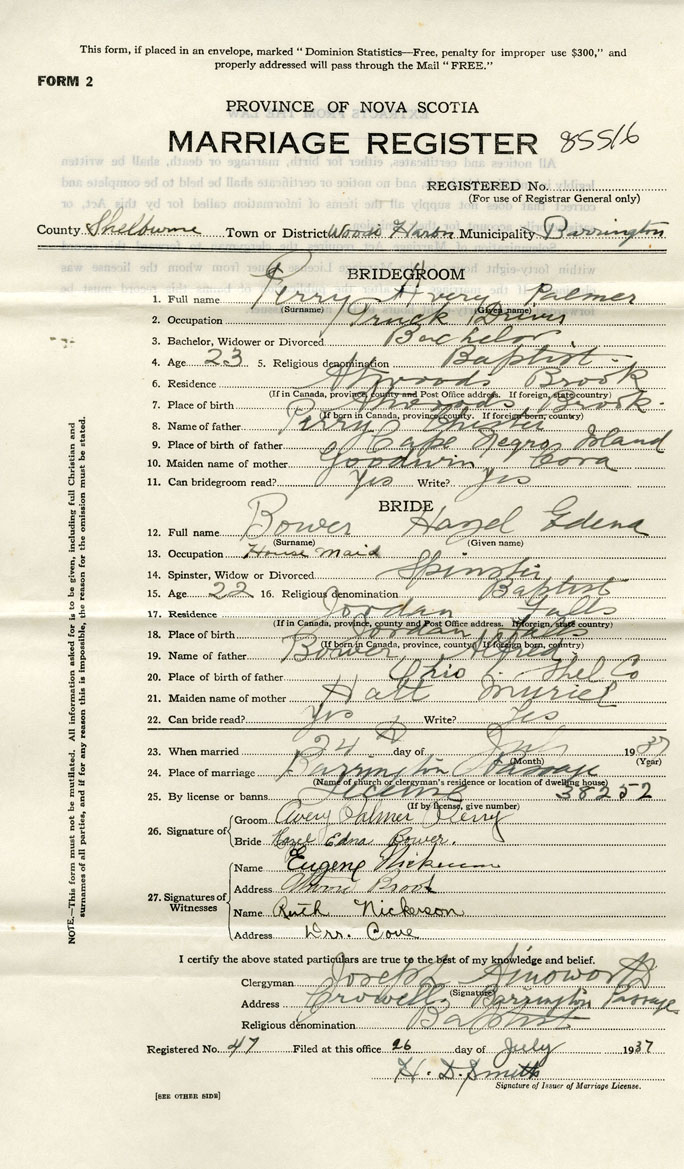 This form, if placed in an envelope, marked "Dominion Statistics—Free, penalty for improper use $300," and
properly addressed will pass through the Mail "FREE."
FORM 2
PROVINCE OF NOVA SCOTIA
MARRIAGE REGISTER 85516
REGISTERED No.
(For use of Registrar General only)
County Shelburne Town or District Woods Harbor Municipality Barrington
BRIDEGROOM
1. Full name Perry Avery Palmer
(Surname) (Given name)
2. Occupation Truck Driver
3. Bachelor, Widower or Divorced Bachelor
4. Age 23 5. Religious denomination Baptist
6. Residence Atwoods Brook
(If in Canada, province, county and Post Office address. If foreign, state country)
7. Place of birth Atwoods Brook
(If born in Canada, province, county. If foreign born, country)
8. Name of father Perry Chester
9. Place of birth of father Cape Negro Island
10. Maiden name of mother Goodwin Cora
11. Can bridegroom read? Yes Write? Yes
BRIDE
12. Full name Bower Hazel Edena
(Surname) (Given name)
13. Occupation House Maid
14. Spinster, Widow or Divorced Spinster
15. Age 22 16. Religious denomination Baptist
17. Residence Jordan Falls
(If in Canada, province, county and Post Office address. If foreign, state country)
18. Place of birth Jordan Falls
(If born in Canada, province, county. If foreign born, country)
19. Name of father Bower
20. Place of birth of father Ohio Shel Co
21. Maiden name of mother Hatt Muriel
22. Can bride read? Yes Write? Yes
23. When married 24 day of July 1937
(Month) (Year)
24. Place of marriage Barrington Passage
(Name of church or clergyman's residence or location of dwelling house)
25. By license or banns License 38252
(If by license, give number)
26. Signature of Groom Avery Palmer Perry
Bride Hazel Edna Bower.
27. Signatures of Witnesses
Name Eugene Nickerson
Address Brook
Name Ruth Nickerson
Address Drs. Cove
I certify the above stated particulars are true to the best of my knowledge and belief.
Clergyman Joseph Ainsworth
(Signature)
Address Crowell, Barrington Passage
Religious denomination Baptist
Registered No. 47 Filed at this office 26 day of July 1937
H. D. Smith
Signature of Issuer of Marriage License.
[SEE OTHER SIDE]
NOTE.—This form must not be mutilated. All information asked for is to be given, including full Christian and
surnames of all parties, and if for any reason this is impossible, the reason for the omission must be stated.